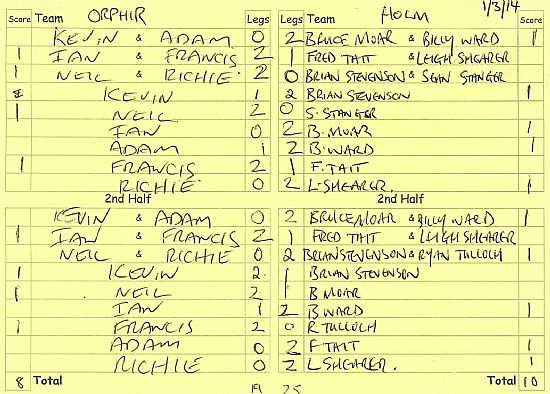 Score Team ORPHIR Legs Legs Team HOLM 1/3/14 Score
KEVIN & ADAM 0 2 BRUCE MOAR & BILLY WARD 1
1 IAN & FRANCIS 2 1 FRED TAIT & LEIGH SHEARER
1 NEIL & RICHIE 2 0 BRIAN STEVENSON & SEAN STANGER
KEVIN 1 2 BRIAN STEVENSON 1
1 NEIL 2 0 S. STANGER
IAN 0 2 B. MOAR 1
ADAM 1 2 B. WARD 1
1 FRANCIS 2 1 F. TAIT
RICHIE 0 2 L. SHEARER. 1
2nd Half 2nd Half
KEVIN & ADAM 0 2 BRUCE MOAR & BILLY WARD 1
1 IAN & FRANCIS 2 1 FRED TAIT & LEIGH SHEARER
NEIL & RICHIE 0 2 BRIAN STEVENSON & RYAN TULLOCH 1
1 KEVIN 2 1 BRIAN STEVENSON
1 NEIL 2 1 B MOAR
IAN 1 2 B WARD 1
1 FRANCIS 2 0 R TULLOCH
ADAM 0 2 F TAIT 1
RICHIE 0 2 L SHEARER. 1
8 Total 19 25 Total 10